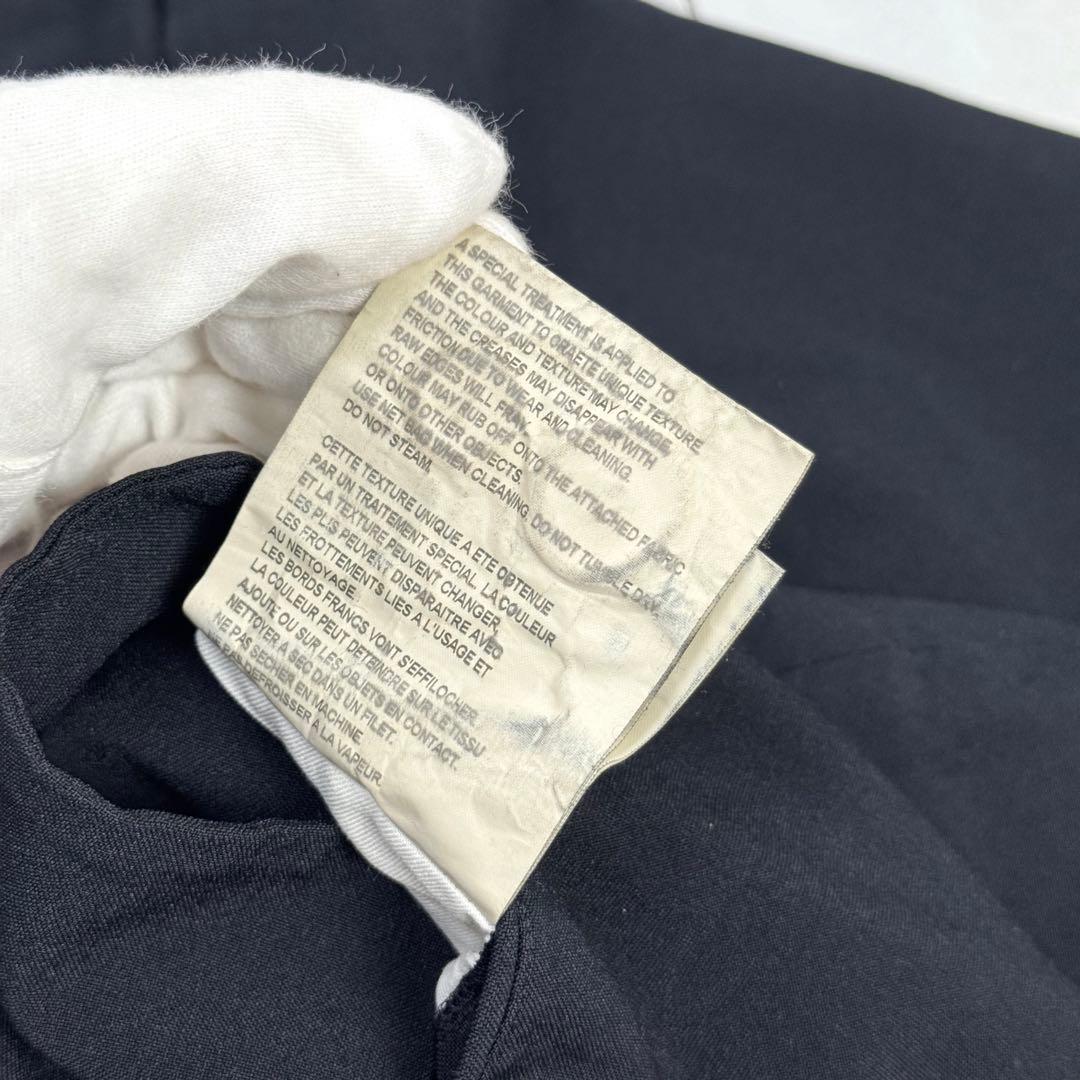 A SPECIAL TREATMENT IS APPLIED TO
THIS GARMENT TO GRAETE UNIQUE TEXTURE
THE COLOUR AND TEXTURE MAY CHANGE,
AND THE CREASES MAY DISAPPEAR WITH
FRICTION DUE TO WEAR AND CLEANING.
RAW EDGES WILL FRAY.
COLOUR MAY RUB OFF ONTO THE ATTACHED FABRIC
OR ONTO OTHER OBJECTS.
USE NET BAG WHEN CLEANING. DO NOT
DO NOT STEAM.
CETTE TEXTURE UNIQUE A ETE OBTENUE
PAR UN TRAITEMENT SPECIAL. LA COULEUR
ET LA TEXTURE PEUVENT CHANGER,
LES PLIS PEUVENT DISPARAITRE AVEC
LES FROTTEMENTS LIES A L'USAGE ET
AU NETTOYAGE.
LES BORDS FRANCS VONT S'EFFILOCHER.
LA COULEUR PEUT DETEINDRE SUR LE TISSU
AJOUTE, OU SUR LES OBJETS EN CONTACT.
NETTOYER A SEC DANS UN FILET.
NE PAS SECHER EN MACHINE.
PAS DEFROISSER A LA VAPEUR.